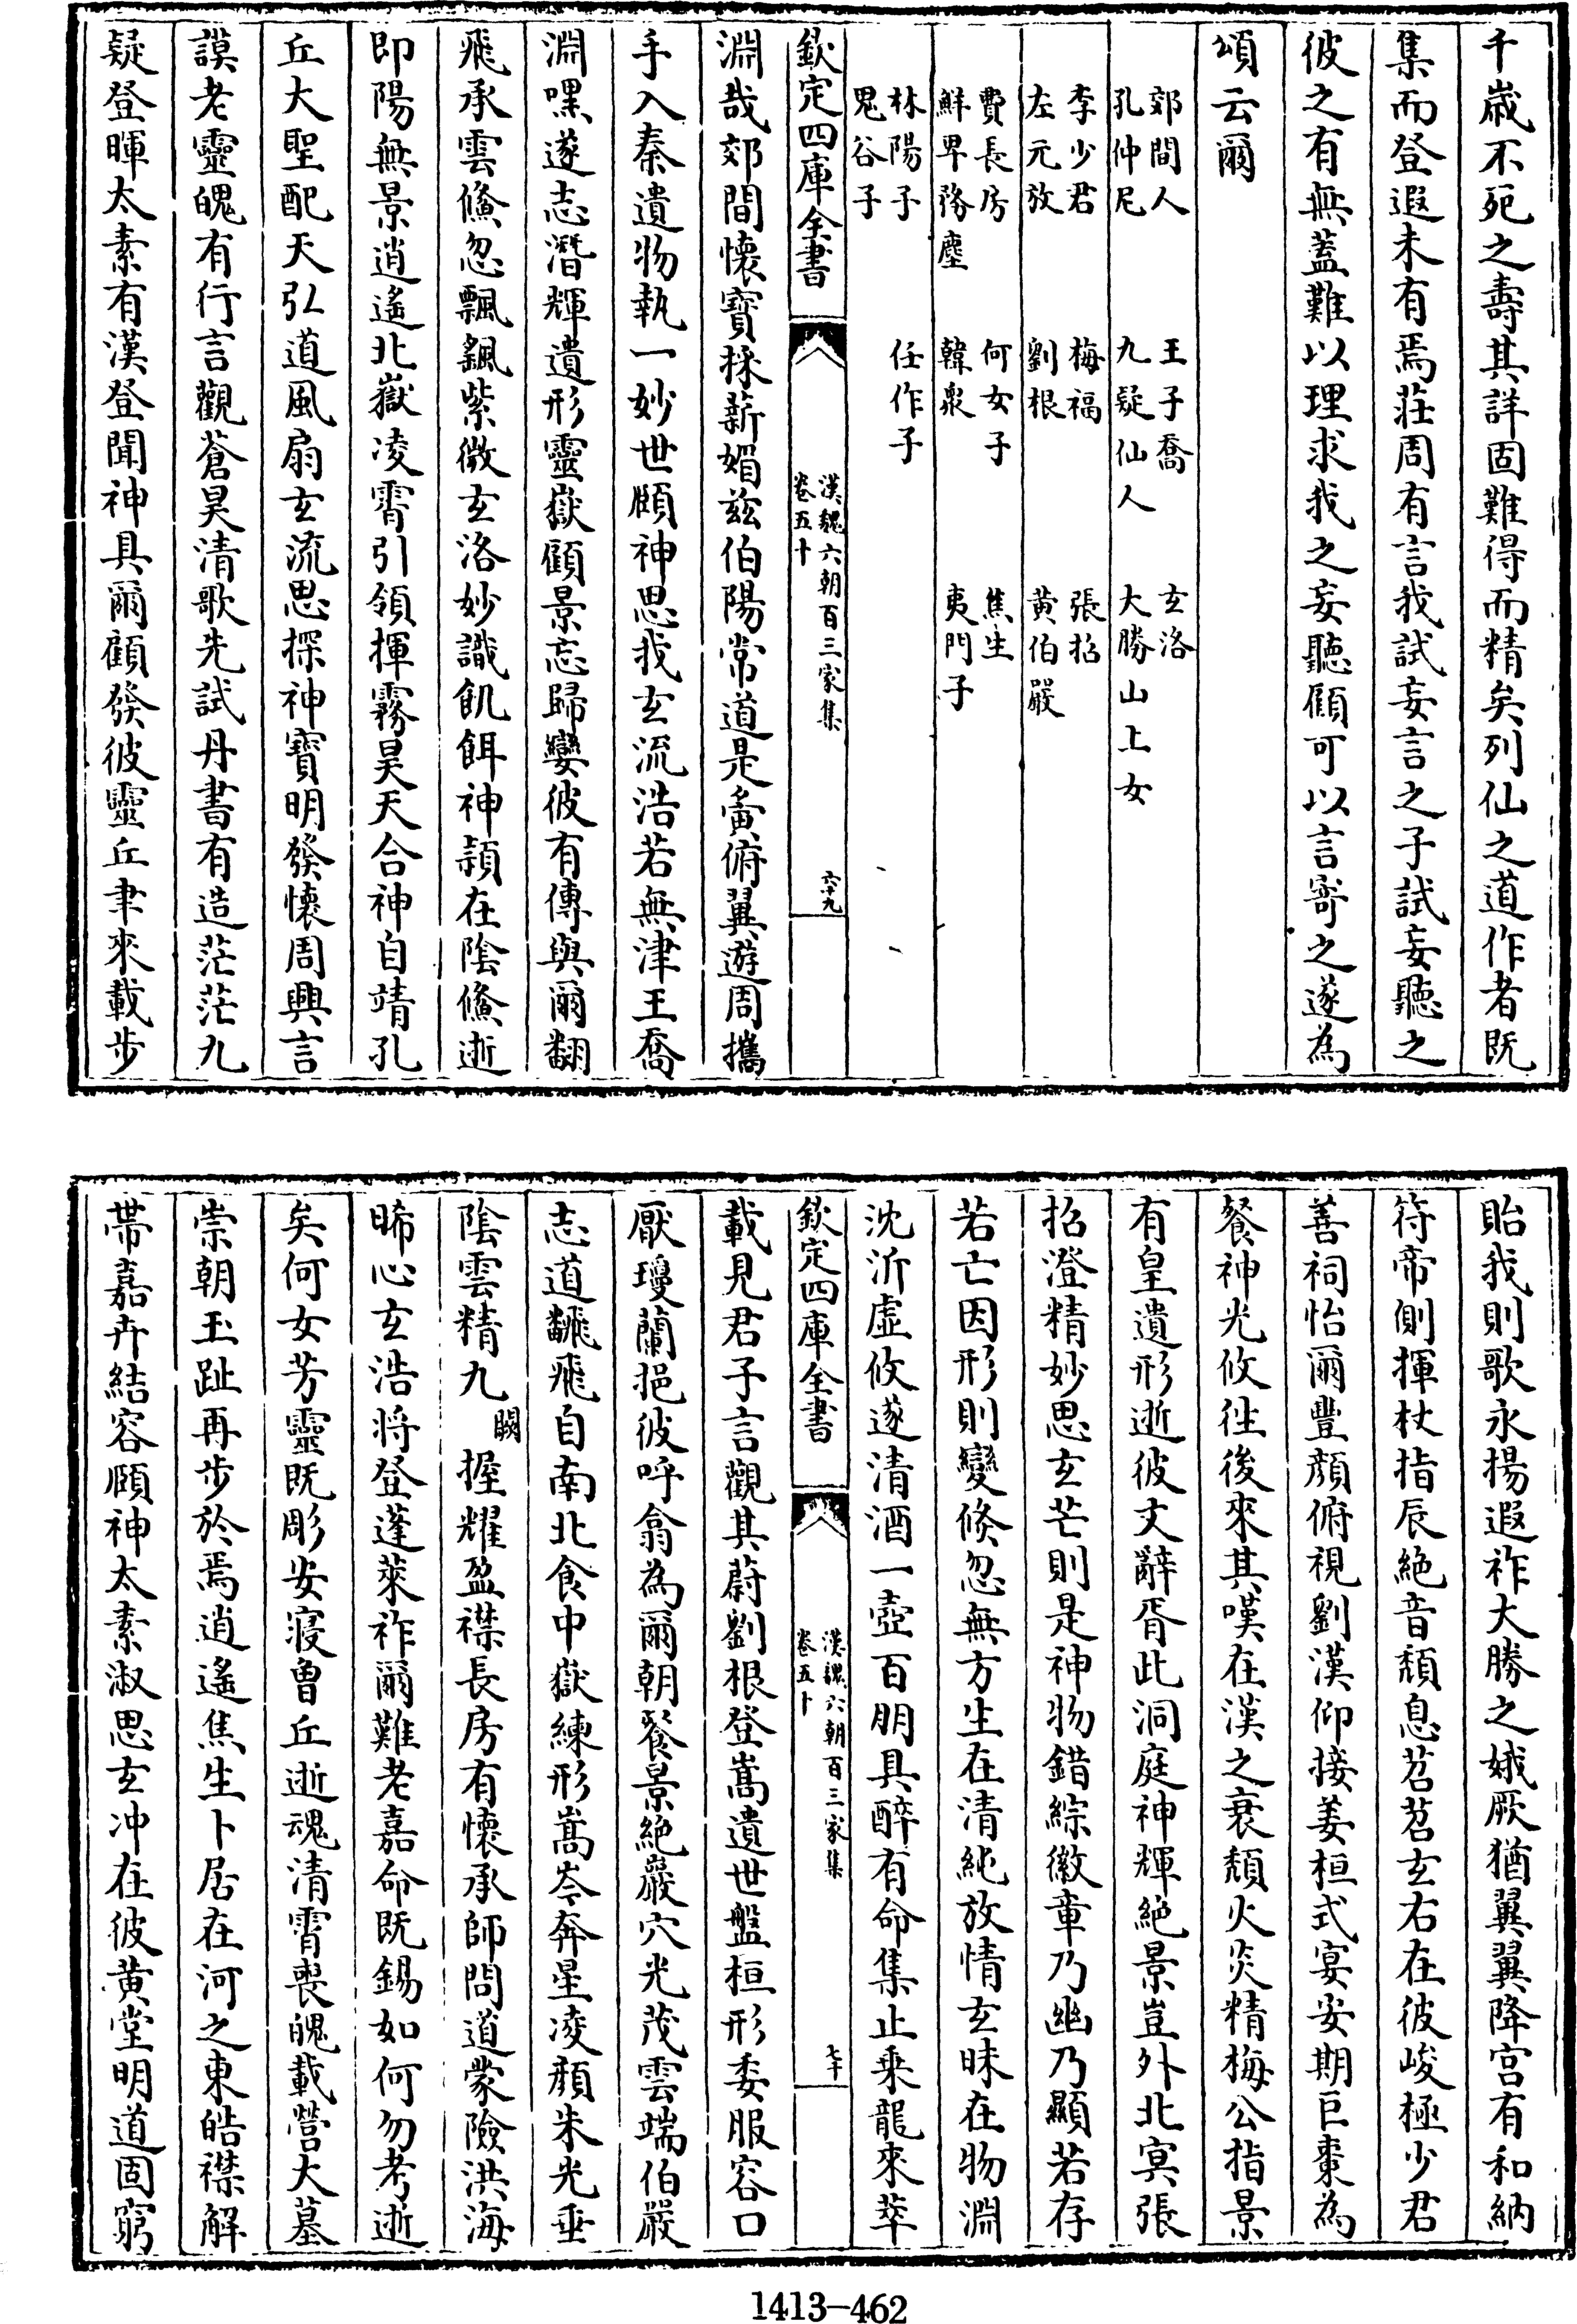 千歳不死之壽其詳固難得而精矣列仙之道作者既
集而登遐未有焉莊周有言我試妄言之子試妄聽之
彼之有無蓋難以理求我之妄聽頋可以言寄之遂為
頌云爾
郊間人　王子喬　玄洛
孔仲尼　九疑仙人　大勝山上女
李少君　梅福　張招
左元放　劉根　黄伯嚴
費長房　何女子　焦生
鮮卑務塵　韓衆　夷門子
林陽子　任作子
鬼谷子
欽定四庫全書　漢魏六朝百三家集卷五十　六十九
淵哉郊間懷寶採薪媚兹伯陽常道是畬俯翼遊周攜
手入秦遺物執一妙世頤神思我玄流浩若無津王喬
淵嘿遂志潛輝遺形靈嶽顧景忘歸孌彼有傳與爾翻
飛承雲儵忽飄颻紫微玄洛妙識飢餌神頴在陰儵逝
即陽無景逍遙北嶽凌霄引領揮霧昊天合神自靖孔
丘大聖配天弘道風扇玄流思探神寶明發懷周興言
謨老靈魄有行言觀蒼昊清歌先試丹書有造茫茫九
疑登暉太素有漢登聞神具爾顧發彼靈丘聿來載步
貽我則歌永揚遐祚大勝之娥厥猶翼翼降宫有和納
符帝側揮杖指辰絶音頽息苕苕玄右在彼峻極少君
善祠怡爾豐顔俯視劉漢仰接姜桓式宴安期巨棗為
餐神光攸徃後來其嘆在漢之衰頽火炎精梅公指景
有皇遺形逝彼丈辭胥此洞庭神輝絶景豈外北㝠張
招澄精妙思玄芒則是神物錯綜徽章乃幽乃顯若存
若亡因形則變倐忽無方生在清純放情玄昧在物淵
沈沂虛攸遂清酒一壺百朋具醉有命集止乘龍來萃
欽定四庫全書　漢魏六朝百三家集卷五十　七十
載見君子言觀其蔚劉根登嵩遺世盤桓形委服容口
厭瓊蘭挹彼呼翕為爾朝餐景絶巖穴光茂雲端伯嚴
志道翻飛自南北食中嶽練形嵩岑奔星凌顔朱光垂
陰雲精九闕握耀盈襟長房有懷承師問道蒙險洪海
晞心玄浩将登蓬萊祚爾難老嘉命既錫如何勿考逝
矣何女芳靈既彫安寢魯丘逝魂清霄喪魄載營大墓
崇朝玉趾再步於焉逍遙焦生卜居在河之東皓襟解
帶嘉卉結容頤神太素淑思玄冲在彼黄堂明道固窮
1413-462